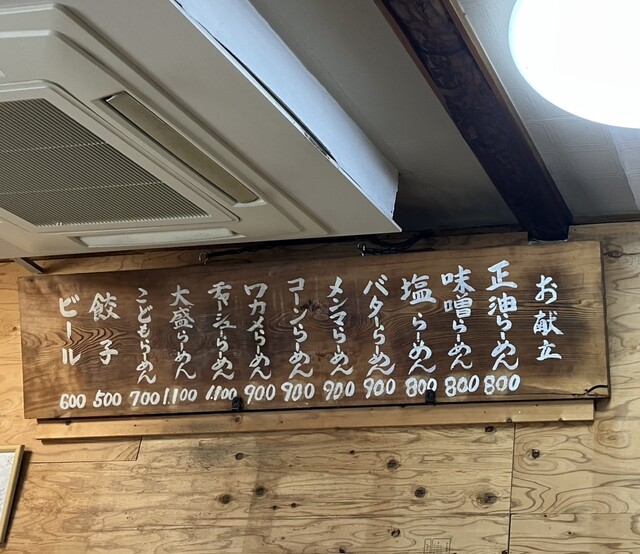 お献立
正油らーめん 800
味噌らーめん 800
塩らーめん 800
バターらーめん 900
メンマらーめん 900
コーンらーめん 900
ワカメらーめん 900
チャーシューらーめん 1.100
大盛らーめん 1.100
こどもらーめん 700
餃子 500
ビール 600